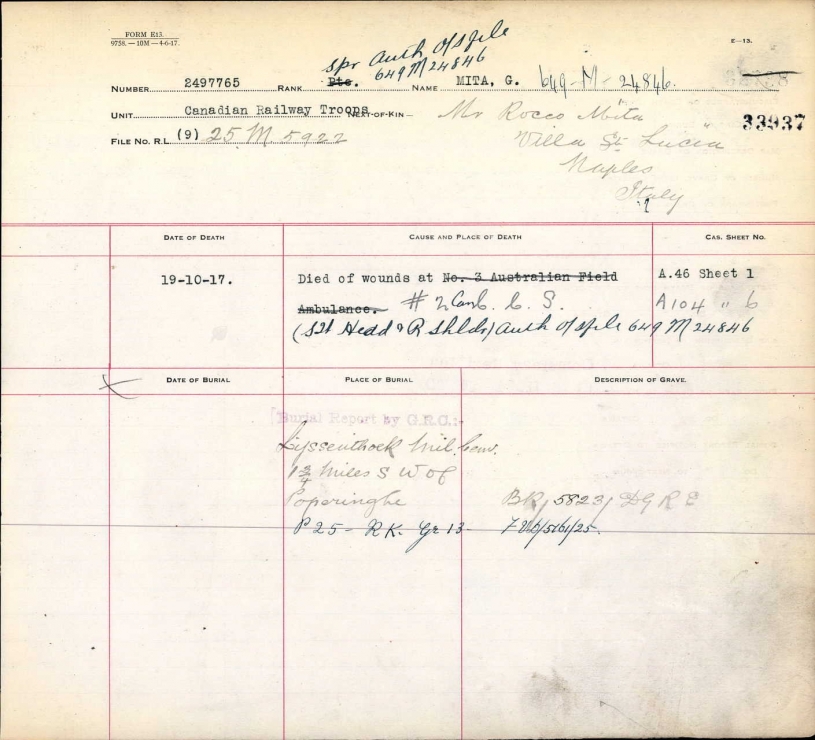 FORM E13.
9758.—10M—4-6-17.
E—13.
Spr Auth
649 M 24846
NUMBER 2497765 RANK Pte. NAME MITA, G. 649-M-24846.
UNIT Canadian Railway Troops NEXT-OF-KIN— Mr Rocco Mita
33937
FILE NO. R.L. (9) 25. M. 5922 Villa St. Lucia
Naples
Italy
DATE OF DEATH CAUSE AND PLACE OF DEATH CAS. SHEET NO.
19-10-17. Died of wounds at No. 3 Australian Field A.46 Sheet 1
Ambulance. # 2 Can. C. C. S. A104 " 6
Auth 649 M 24846
DATE OF BURIAL PLACE OF BURIAL DESCRIPTION OF GRAVE.
[Burial Report by G.R.C.:-
Lyssenthoek Mil. Cem.
1 3/4 Miles S W of
Poperinghe BR/5823/DGRE
P 25 - R K. Gr 13